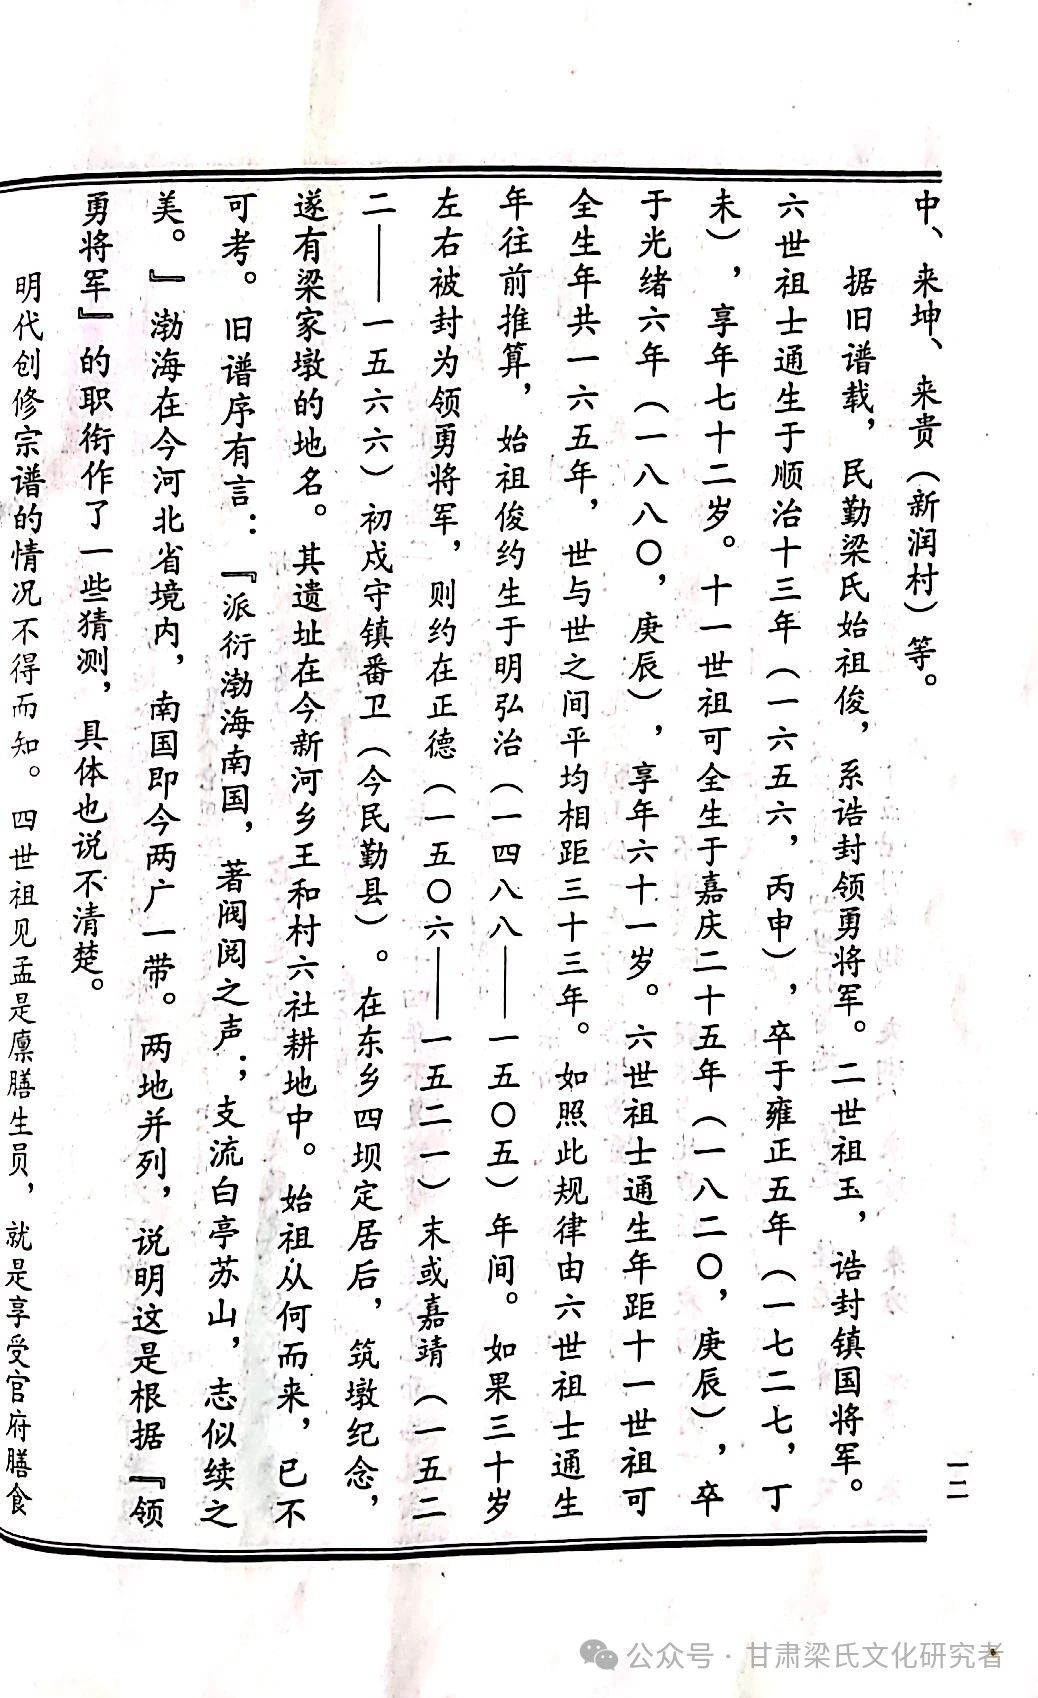 中、来坤、来贵（新润村）等。
据旧谱载，民勤梁氏始祖俊，系诰封领勇将军。二世祖玉，诰封镇国将军。
六世祖士通生于顺治十三年（一六五六，丙申），卒于雍正五年（一七二七，丁
未），享年七十二岁。十一世祖可全生于嘉庆二十五年（一八二〇，庚辰），卒
于光绪六年（一八八〇，庚辰），享年六十一岁。六世祖士通生年距十一世祖可
全生年共一六五年，世与世之间平均相距三十三年。如照此规律由六世祖士通生
年往前推算，始祖俊约生于明弘治（一四八八——一五〇五）年间。如果三十岁
左右被封为领勇将军，则约在正德（一五〇六——一五二一）末或嘉靖（一五二
二——一五六六）初戍守镇番卫（今民勤县）。在东乡四坝定居后，筑墩纪念，
遂有梁家墩的地名。其遗址在今新河乡王和村六社耕地中。始祖从何而来，已不
可考。旧谱序有言：『派衍渤海南国，著阀阅之声；支流白亭苏山，志似续之
美。』渤海在今河北省境内，南国即今两广一带。两地并列，说明这是根据『领
勇将军』的职衔作了一些猜测，具体也说不清楚。
明代创修宗谱的情况不得而知。四世祖见孟是廪膳生员，就是享受官府膳食
一二
公众号·甘肃梁氏文化研究者